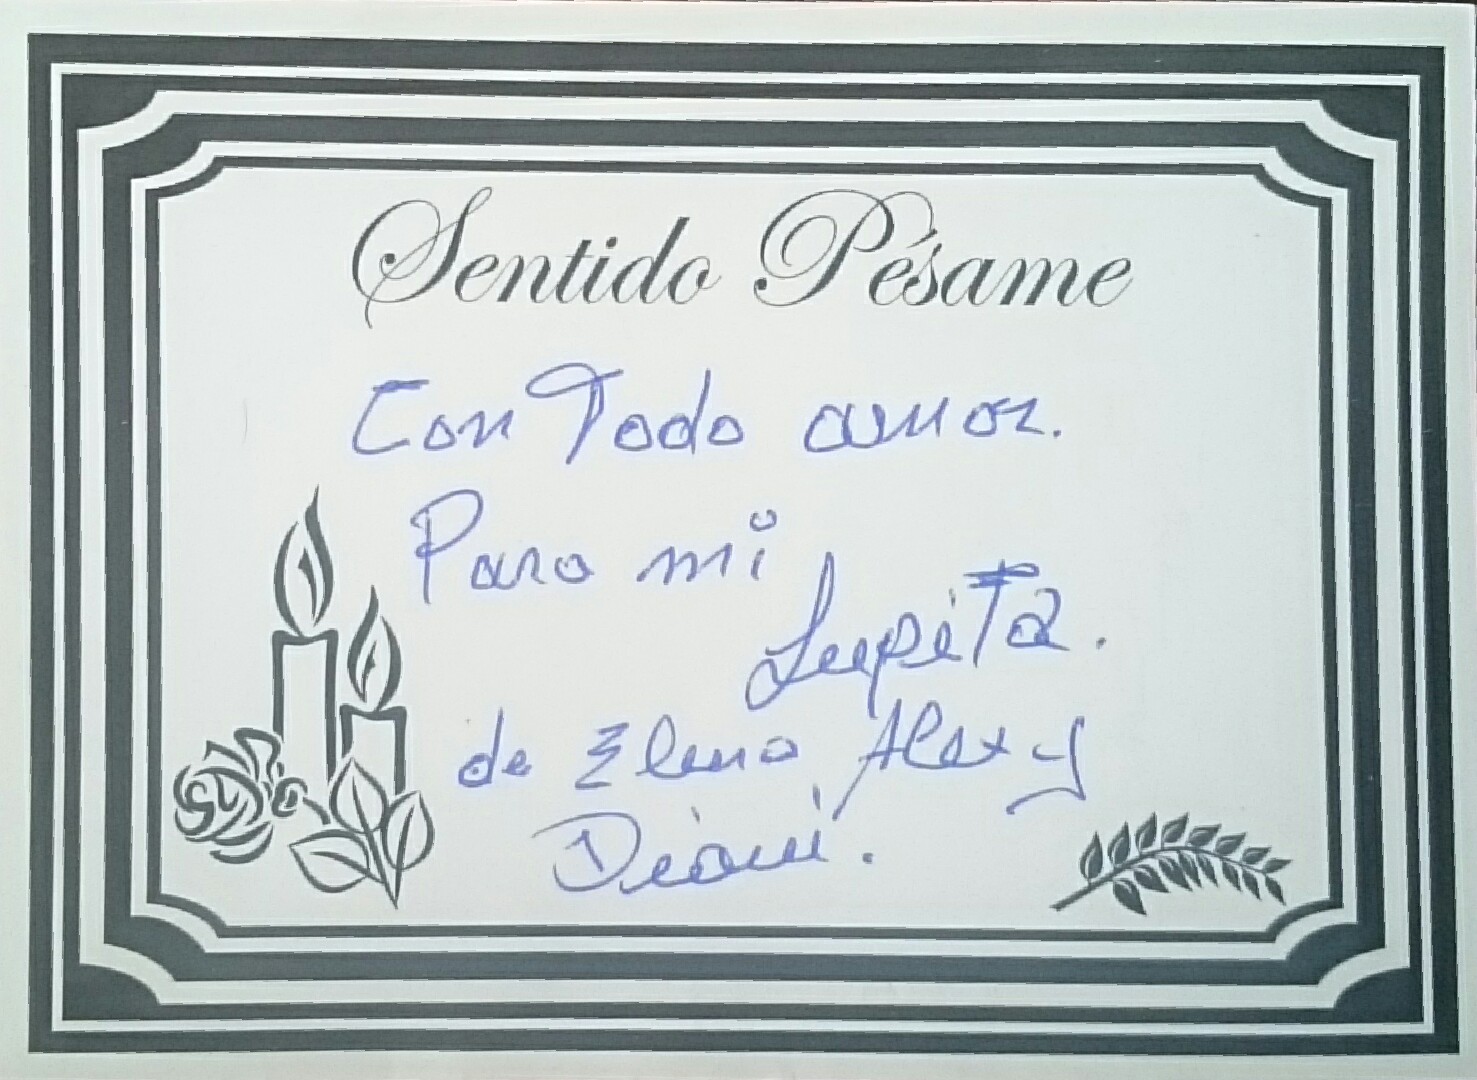 Sentido Pésame
Con Todo amor.
Para mi
Lupita.
de Elena Alex y
Diani.